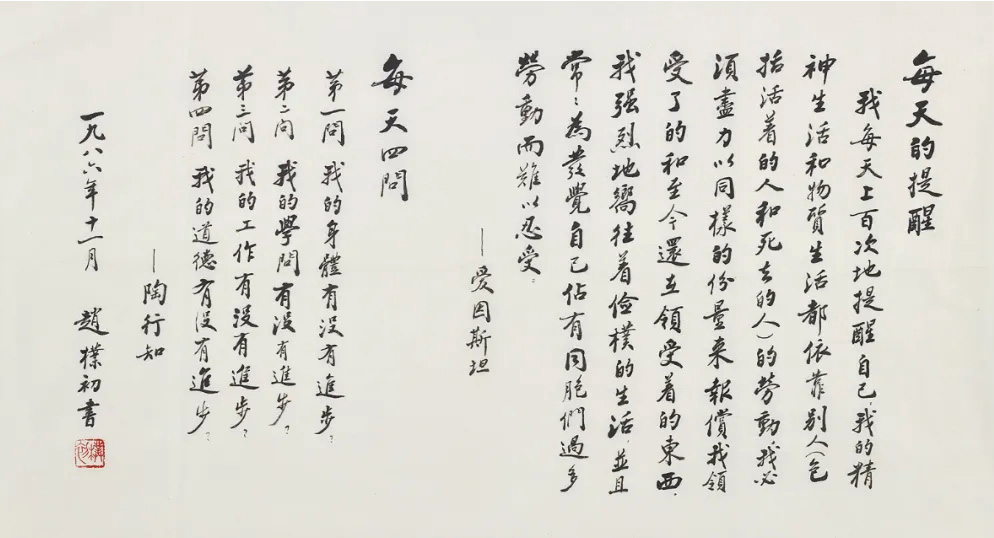 每天的提醒
我每天上百次地提醒自己,我的精
神生活和物質生活都依靠别人(包
括活着的人和死去的人)的勞動,我必
須盡力以同樣的份量来報償我領
受了的和至今還在領受着的東西,
我强烈地嚮往着儉樸的生活,並且
常:為發覺自己佔有同胞們過多
勞動而難以忍受.
—愛因斯坦
每天四問
第一問 我的身體有没有進步?
第二问 我的學問有没有進步?
第三问 我的工作有没有進步?
第四問 我的道德有没有進步?
—陶行知
一九八六年十一月 趙樸初書
樸初